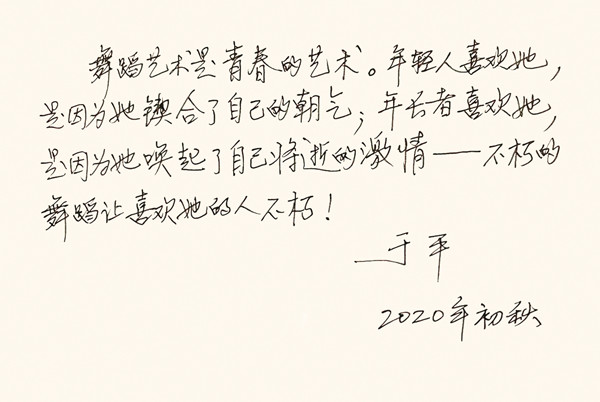 舞蹈艺术是青春的艺术。年轻人喜欢她，
是因为她锲合了自己的朝气；年长者喜欢她，
是因为她唤起了自己将逝的激情——不朽的
舞蹈让喜欢她的人不朽！
于平
2020年初秋